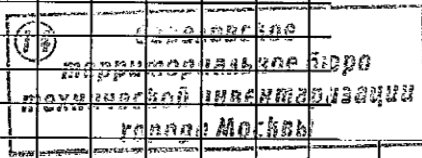 Савеловское
территориальное бюро
технической инвентаризации
города Москвы